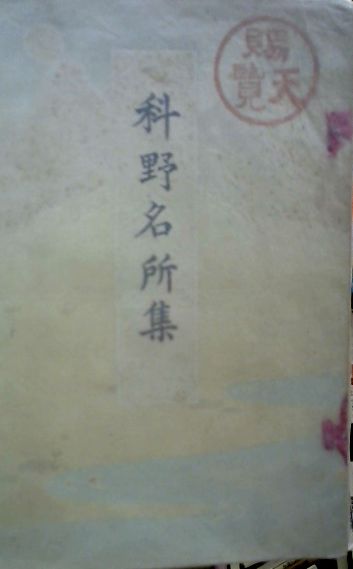 賜天覧
科野名所集